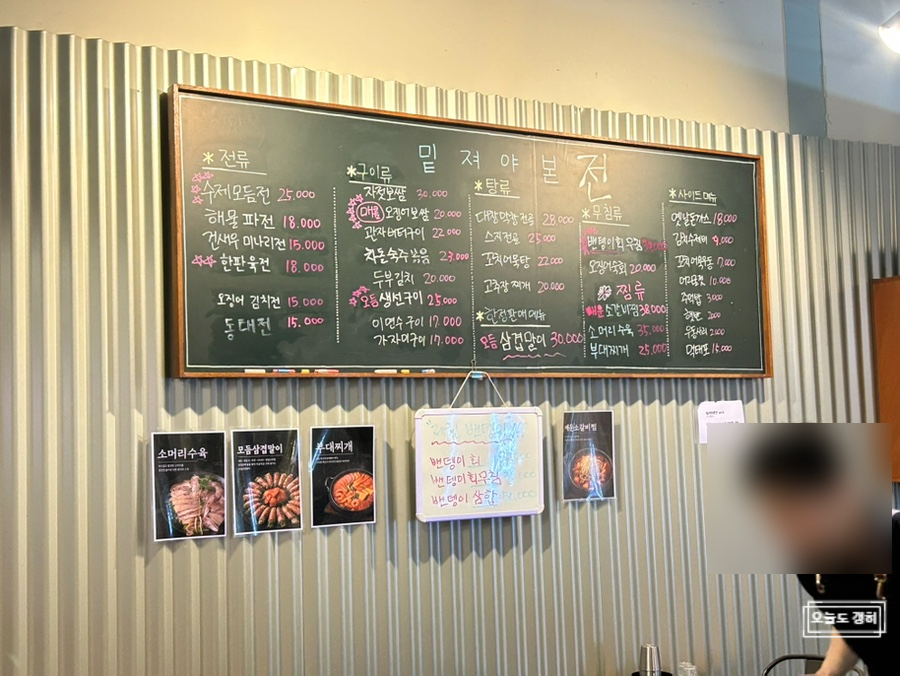 밑져야 본전
*전류
수제모듬전 25.000
해물파전 18.000
건새우 미나리전 15.000
한판육전 18.000
오징어 김치전 15.000
동태전 15.000
*구이류
자젓보쌈 30.000
매콤 오징어보쌈 20.000
관자버터구이 22.000
차돌숙주볶음 23.000
두부김치 20.000
모듬 생선구이 25.000
이면수구이 17.000
가자미구이 17.000
*탕류
28.000
스지전골 25.000
꼬치어묵탕 22.000
고추장 찌개 20.000
*한정판매 메뉴
모듬 삼겹말이 30.000
*무침류
밴댕이회무침
오징어숙회 20.000
찜류
매운 소갈비찜 38.000
소머리 수육 35.000
부대찌개 25.000
*사이드 메뉴
옛날돈까스 18.000
김치수제비 9.000
꼬치어묵우동 7.000
10.000
주먹밥 3.000
햇반 2000
우동사리 2.000
먹태포 15.000
소머리수육
모듬삼겹말이
부대찌개
밴댕이 회
밴댕이회무침
밴댕이 삼합
매운소갈비찜
오늘도 갬히